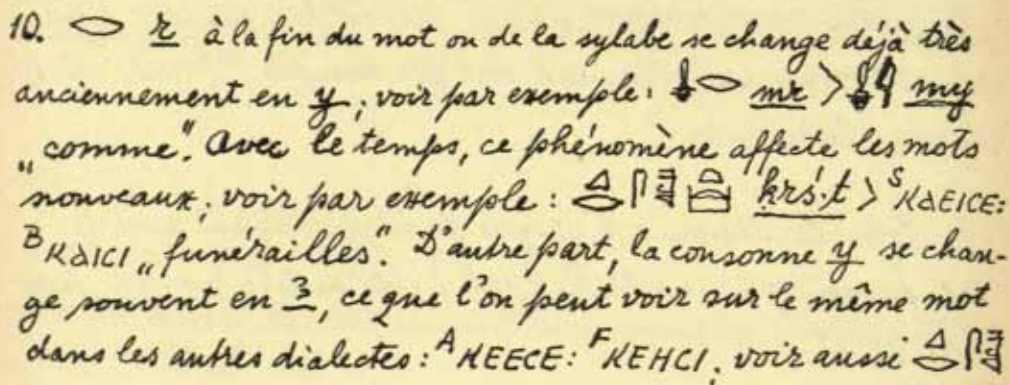 10. 𓂋 r à la fin du mot ou de la sylabe se change déjà très
anciennement en y; voir par exemple: 𓌻𓂋 mr > 𓏇𓇋 my
„comme". Avec le temps, ce phénomène affecte les mots
nouveaux; voir par exemple: ḳrś·t > ˢⲕⲁⲉⲓⲥⲉ:
ᴮⲕⲁⲓⲥⲓ „funérailles". D'autre part, la consonne y se chan-
ge souvent en ꜣ, ce que l'on peut voir sur le même mot
dans les autres dialectes: ᴬⲕⲉⲉⲥⲉ: ꟳⲕⲉⲏⲥⲓ; voir aussi